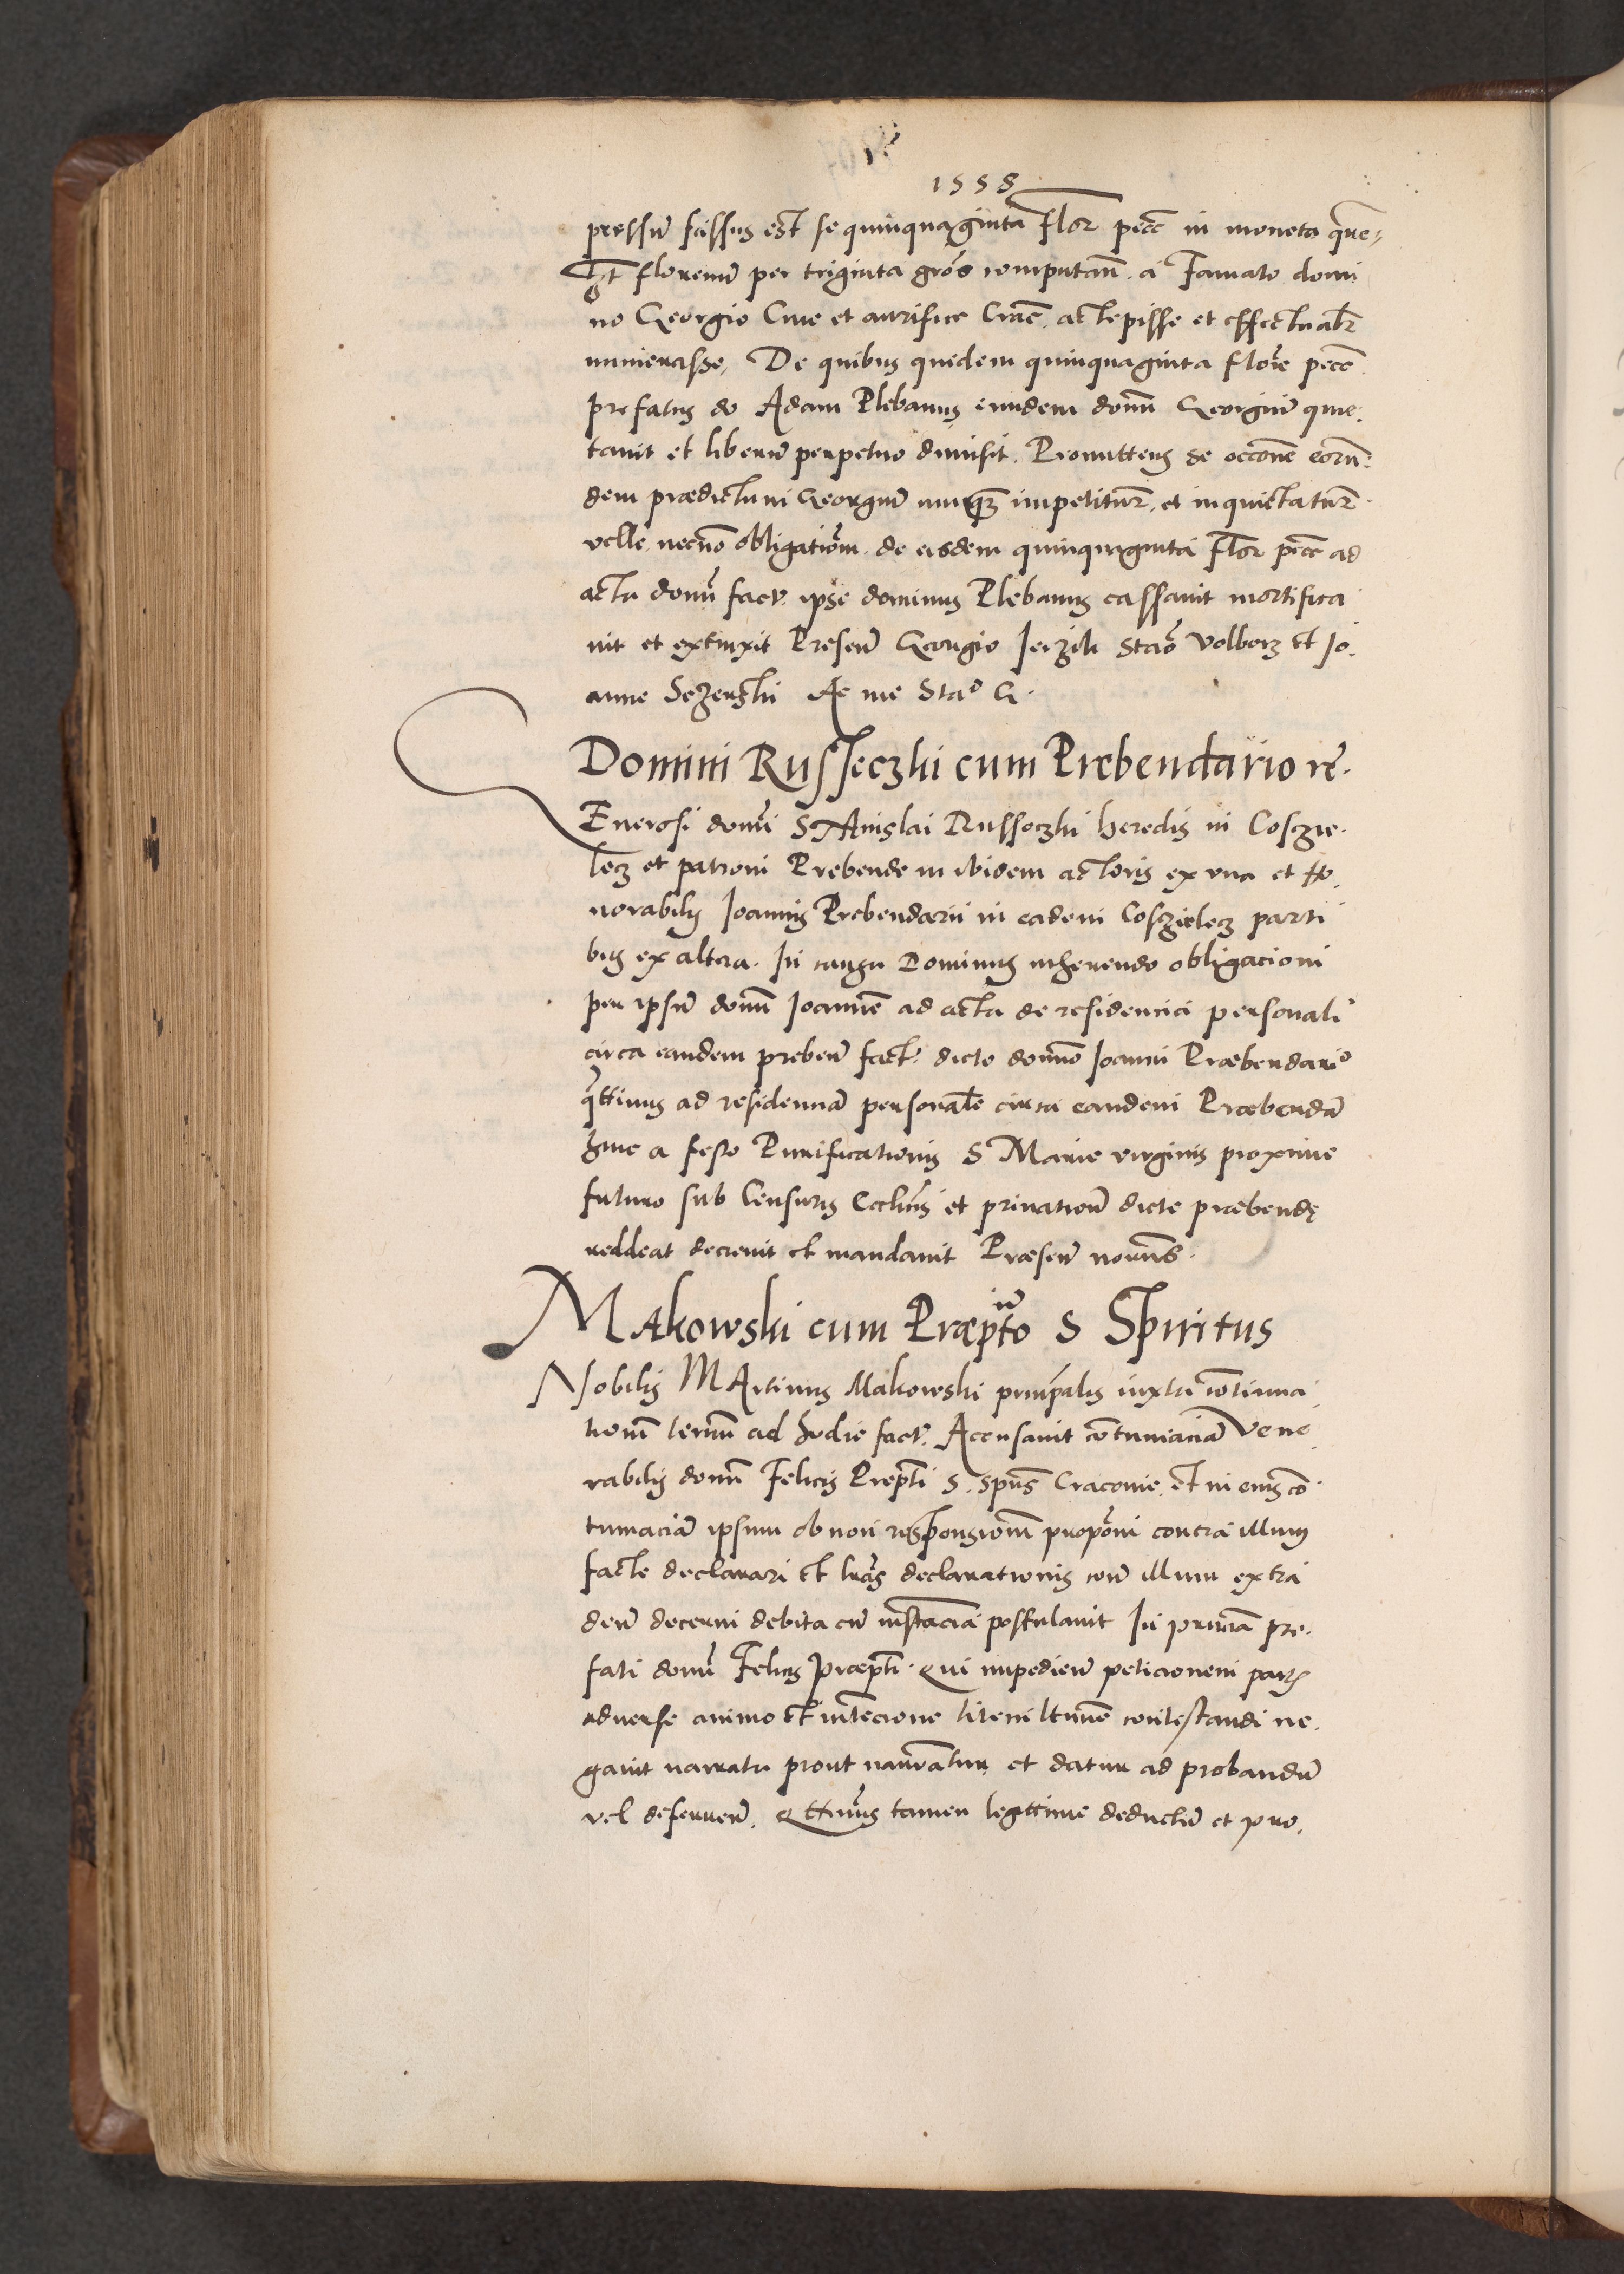 1558
pressum fassus est se quinquaginta Flor pecc in moneta
florenum per triginta gros computan. a Famato domi
no Georgio Cive et aurifice Crac. accepisse et effectualr
numerasse, De quibus quidem quinquaginta flore pecc
prefatus do Adam Plebanus eundem domin Georgium quie.
tavit et liberum perpetuo dimisit. Promittens se occone eorun.
dem prædictum Georgium nunq impetitur, et inquietatur
velle, necno obligation. de eisdem quinquaginta Flor pecc ad
acta domi fact. ipse dominus Plebanus cassavit mortifica
vit et extinxit Presen Georgio Jerzik Stao Volborz et Jo.
anne Ae me Stao G.
Domini Russeczki cum Præbendario re.
Enerosi domi STAnislai Russoczki heredis in Coscze.
lecz et patroni Prebende in ibidem actoris ex una et Ho.
norabilis Joannis Prebendarii in eadem Cosczielecz parti
bus ex altera. In causa Dominus inherendo obligacioni
per ipsum domn Joanne ad acta de residencia personali
circa eandem preben fact. dicto domno Joanni Præbendario
qttinus ad residenciam personale circa eandem Præbendam
hinc a festo Purificationis S Marie virginis proxime
futuro sub Censuris Ecclicis et privation dicte præbendę
reddeat decrevit et mandavit Præsen
MAkowski cum Præpto S Spiritus
Nobilis MArtinus Makowski principalis iuxta continua
tionem termi ad hodie fact. Accusavit contumaciam Vene
rabilis domi Felicis Prepti S. Spus Cracovie, et in eius con
tumaciam ipsum ob non responsionem proponi contra illum
facte declarari et lras declarationis con illum extra
den decerni debita cum instacia postulavit In pnciam pre.
fati domi Felicis Præpti. Qui impedien peticionem partis
adverse animo et intecione litem ltime contestandi ne.
gavit narrata prout narrantur, et datur ad probandum
vel deferren. Qttinus tamen legittime deductum et pro.